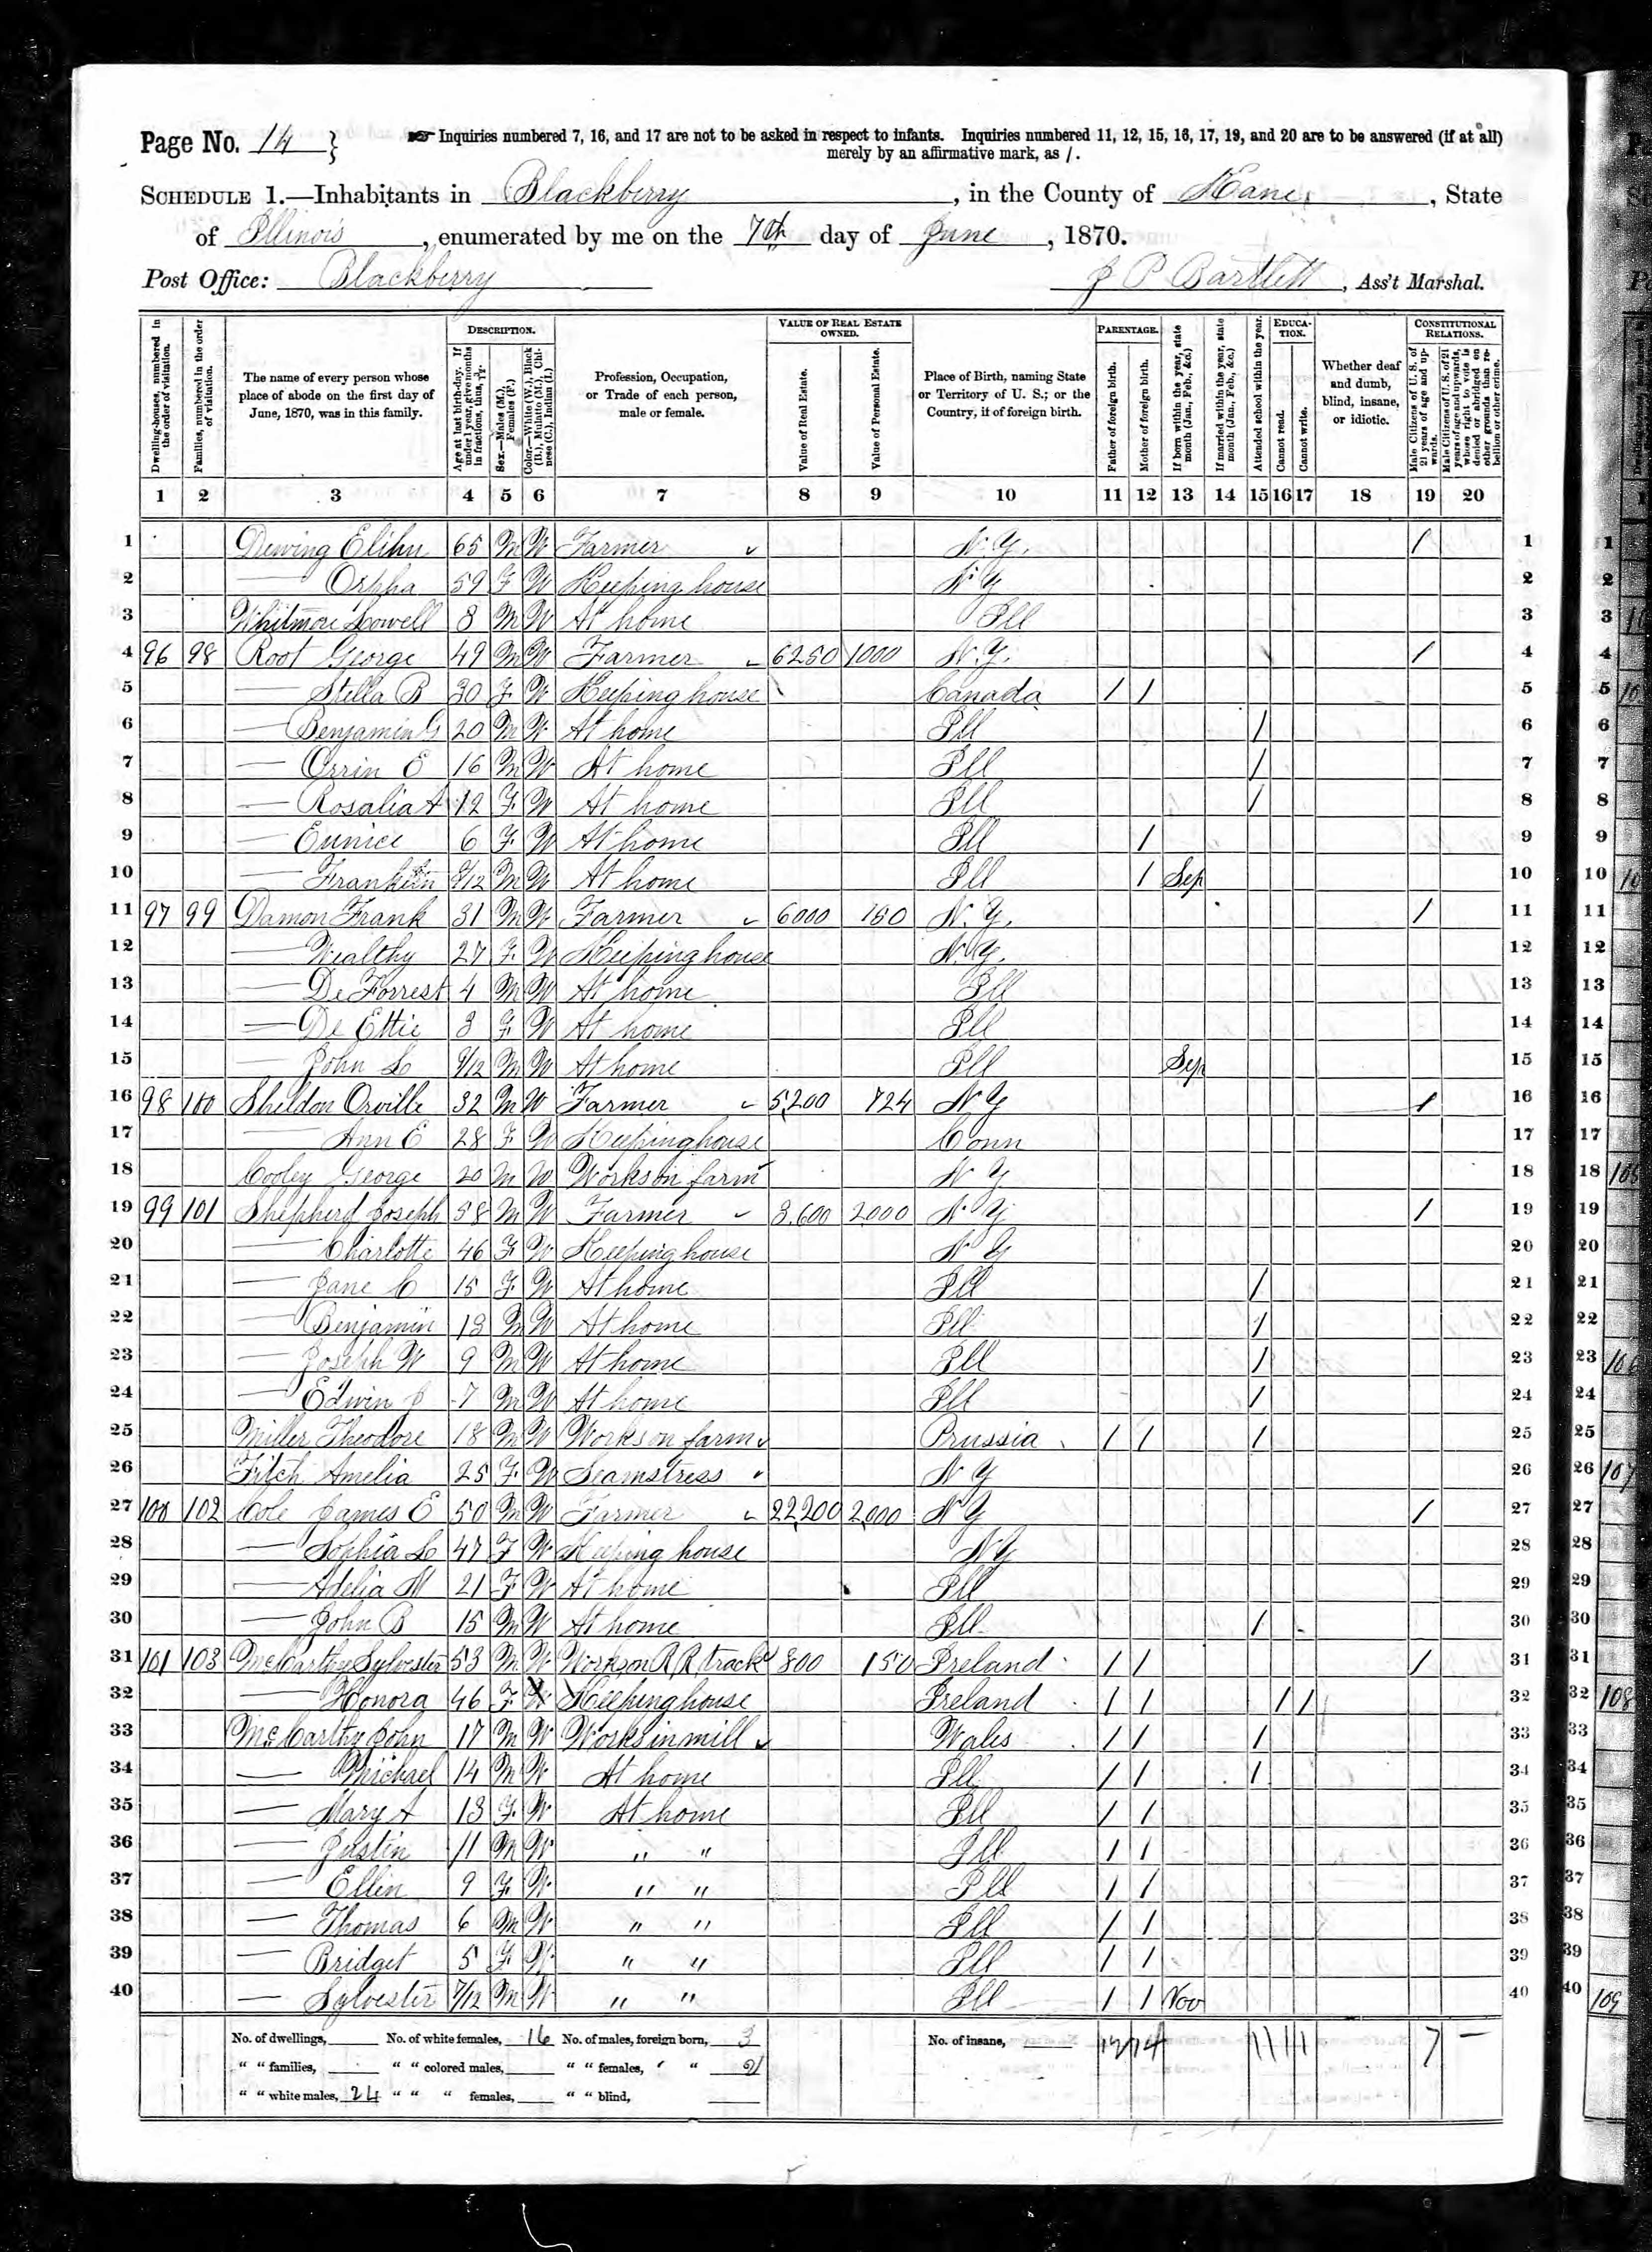 Page No. 14 }
☞ Inquiries numbered 7, 16, and 17 are not to be asked in respect to infants. Inquiries numbered 11, 12, 15, 16, 17, 19, and 20 are to be answered (if at all)
merely by an affirmative mark, as /.
SCHEDULE 1.—Inhabitants in Blackberry, in the County of Kane, State
of Illinois, enumerated by me on the 7th day of June, 1870.
Post Office: Blackberry J P Bartlett, Ass't Marshal.
DESCRIPTION. VALUE OF REAL ESTATE OWNED. PARENTAGE. EDUCATION. CONSTITUTIONAL RELATIONS.
Dwelling-houses, numbered in the order of visitation.
Families, numbered in the order of visitation.
The name of every person whose place of abode on the first day of June, 1870, was in this family.
Age at last birth-day. If under 1 year, give months in fractions, thus, 3/12.
Sex.—Males (M.), Females (F.)
Color.—White (W.), Black (B.), Mulatto (M.), Chinese (C.), Indian (I.)
Profession, Occupation, or Trade of each person, male or female.
Value of Real Estate.
Value of Personal Estate.
Place of Birth, naming State or Territory of U. S.; or the Country, if of foreign birth.
Father of foreign birth.
Mother of foreign birth.
If born within the year, state month (Jan., Feb., &c.)
If married within the year, state month (Jan., Feb., &c.)
Attended school within the year.
Cannot read.
Cannot write.
Whether deaf and dumb, blind, insane, or idiotic.
Male Citizens of U. S. of 21 years of age and upwards.
Male Citizens of U. S. of 21 years of age and upwards, whose right to vote is denied or abridged on other grounds than rebellion or other crime.
1 2 3 4 5 6 7 8 9 10 11 12 13 14 15 16 17 18 19 20
1 Dewing Elihu 65 M W Farmer N.Y. / 1
2 — Orpha 59 F W Keeping house N.Y 2
3 Whitmore Lowell 8 M W At home Ill 3
4 96 98 Root George 49 M W Farmer 6250 1000 N.Y. / 4
5 — Stella B 30 F W Keeping house Canada / / 5
6 — Benjamin G 20 M W At home Ill / 6
7 — Orrin E 16 M W At home Ill / 7
8 — Rosalia A 12 F W At home Ill / 8
9 — Eunice 6 F W At home Ill / 9
10 — Franklin 9/12 M W At home Ill / Sep 10
11 97 99 Damon Frank 31 M W Farmer 6000 150 N.Y. / 11
12 — Wealthy 27 F W Keeping house N.Y. 12
13 — De Forrest 4 M W At home Ill 13
14 — De Ettie 3 F W At home Ill 14
15 — John L 9/12 M W At home Ill Sep 15
16 98 100 Sheldon Orville 32 M W Farmer 5,200 724 N Y / 16
17 — Ann E 28 F W Keeping house Conn 17
18 Cooley George 20 M W Works on farm N Y 18
19 99 101 Shepherd Joseph 58 M W Farmer 3,600 2,000 N.Y. / 19
20 — Charlotte 46 F W Keeping house N Y 20
21 — Jane C 15 F W At home Ill / 21
22 — Benjamin 13 M W At home Ill / 22
23 — Joseph W 9 M W At home Ill / 23
24 — Edwin J 7 M W At home Ill / 24
25 Miller Theodore 18 M W Works on farm Prussia / / / 25
26 Fitch Amelia 25 F W Seamstress N Y 26
27 100 102 Cole James E 50 M W Farmer 22,200 2,000 N Y / 27
28 — Sophia L 47 F W Keeping house N.Y 28
29 — Adelia M 21 F W At home Ill 29
30 — John B 15 M W At home Ill / 30
31 101 103 McCarthy Sylvester 53 M W Works on R,R, track 800 150 Ireland / / / 31
32 — Honora 46 F W Keeping house Ireland / / / / 32
33 McCarthy John 17 M W Works in mill Wales / / / 33
34 — Michael 14 M W At home Ill / / / 34
35 — Mary A 13 F W At home Ill / / 35
36 — Justin 11 M W " " Ill / / 36
37 — Ellin 9 F W " " Ill / / 37
38 — Thomas 6 M W " " Ill / / 38
39 — Bridget 5 F W " " Ill / / 39
40 — Sylvester 7/12 M W " " Ill / / Nov 40
No. of dwellings, No. of white females, 16 No. of males, foreign born, 3 No. of insane, 12 14 11 1 1 7 —
" " families, " " colored males, " " females, " " 2
" " white males, 24 " " " females, " " blind,